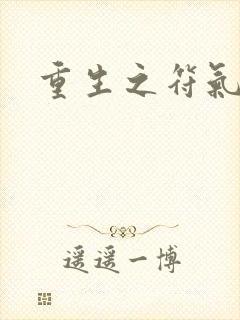 重生之符氣
遥遥一博